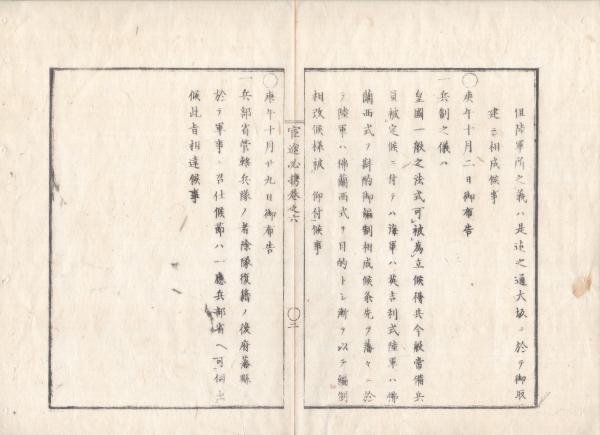 但陸軍所之義ハ是迠之通大坂ニ於テ御取
建ニ相成候事
〇庚午十月二日御布告
一兵制之儀ハ
皇國一般之法式可被為立候得共今般常備兵
員被定候ニ付テハ海軍ハ英吉利式陸軍ハ佛
蘭西式ヲ斟酌御編制相成候条先ヲ藩々ニ於
テ陸軍ハ佛蘭西式ヲ目的トシ漸ヲ以テ編制
相改候様被 仰付候事
官途必携巻之六
〇二
〇庚午十月廿九日御布告
一兵部省管轄兵隊ノ者除隊復籍ノ後府藩縣ニ
於テ軍事ニ召仕候節ハ一應兵部省ヘ可伺出
候此旨相達候事